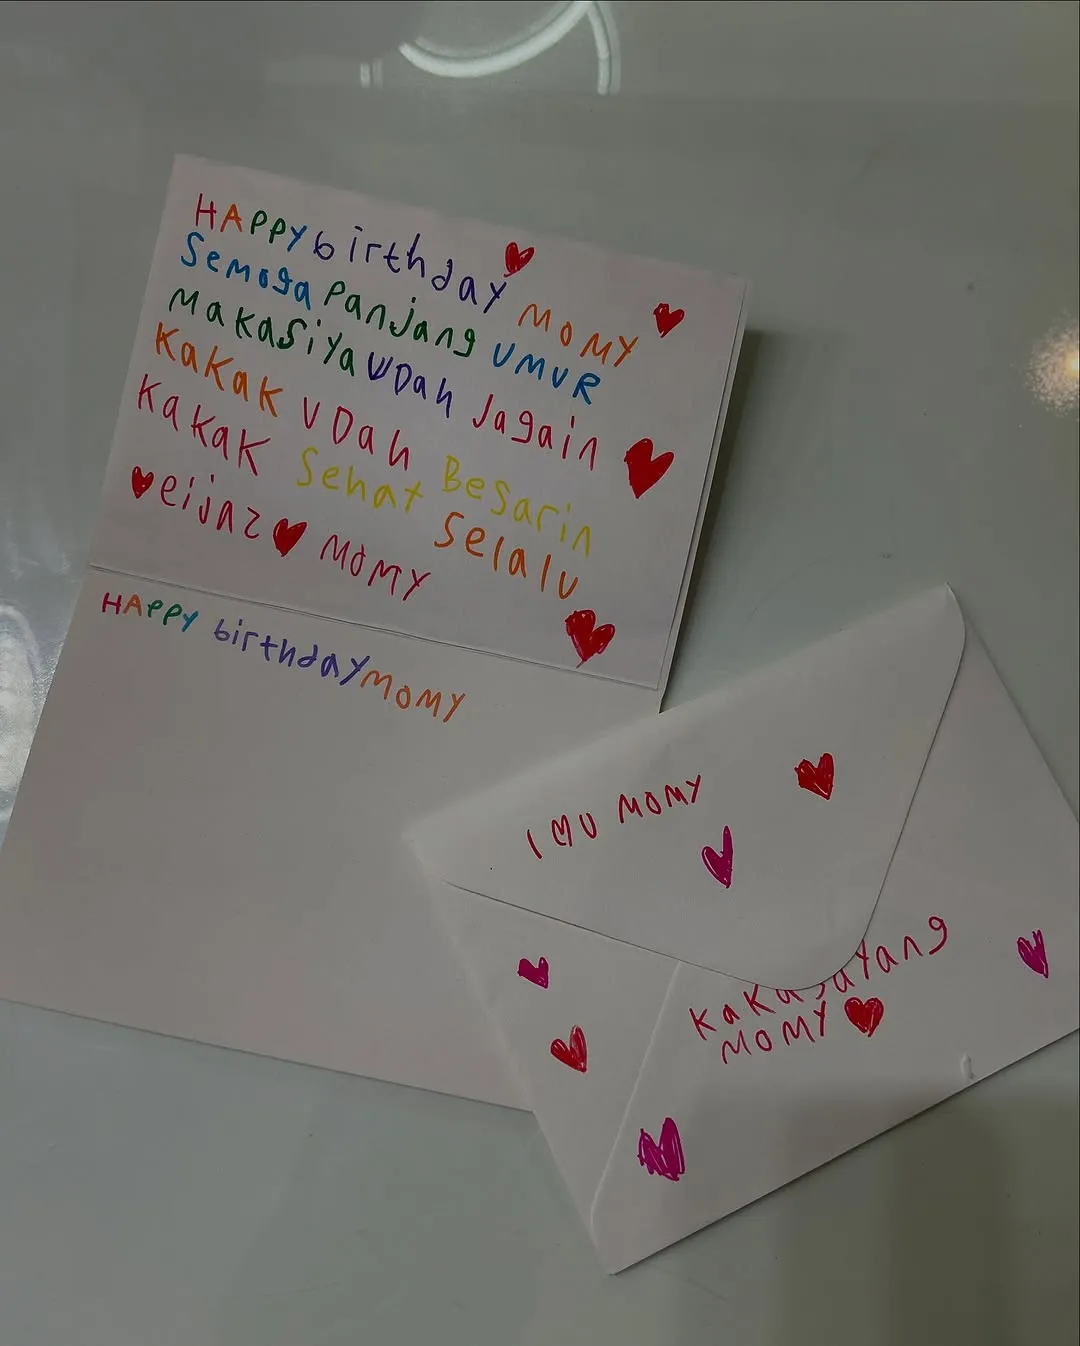 HAPPY birthday MOMY
Semoga Panjang UMUR
MakaSiya UDah Jagain
KaKaK UDah Besarin
KaKaK Sehat Selalu
eijaz MOMY
HAPPY birthdayMOMY
I ❤ U MOMY
KaKaSayang
MOMY